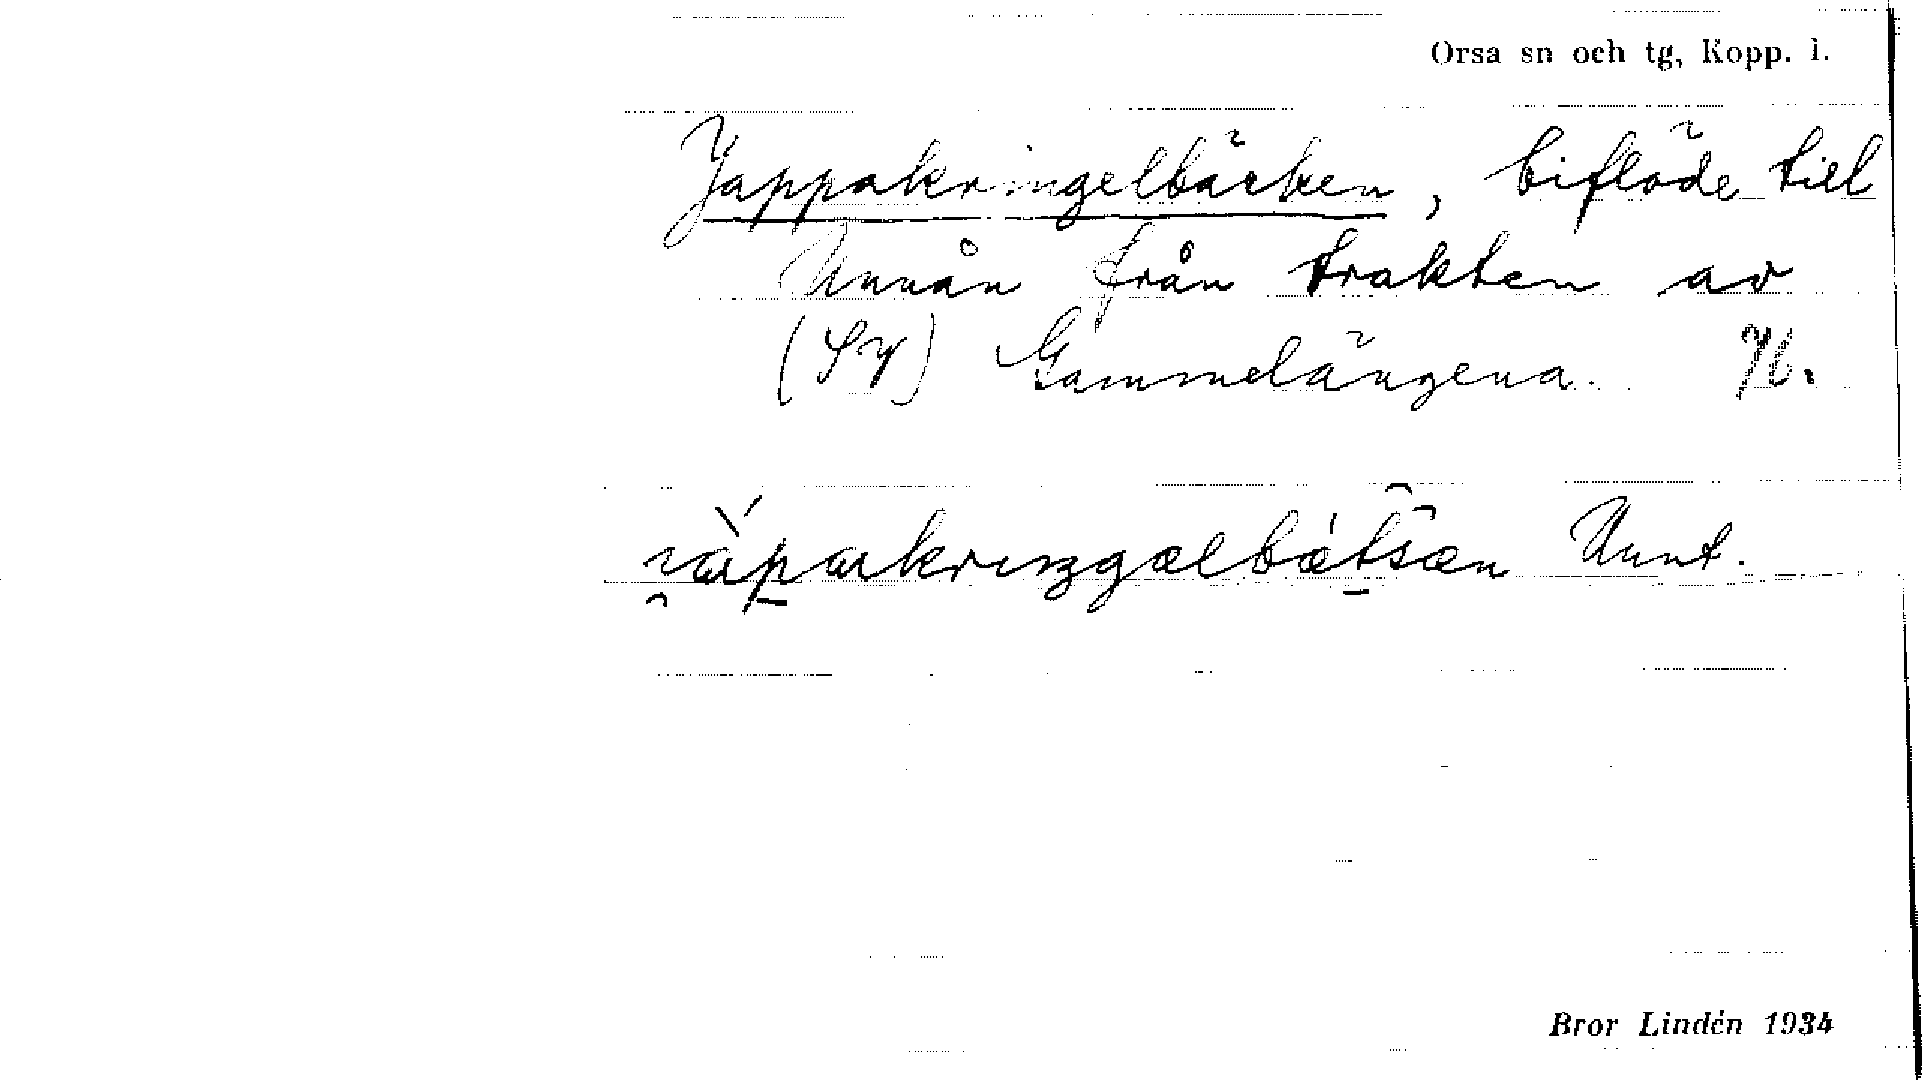 Orsa sn och tg, Kopp. l.
Jappakringelbäcken, biflöde till
Unnån från trakten av
(SV) Gammelängena.
Unnt.
Bror Lindén 1934